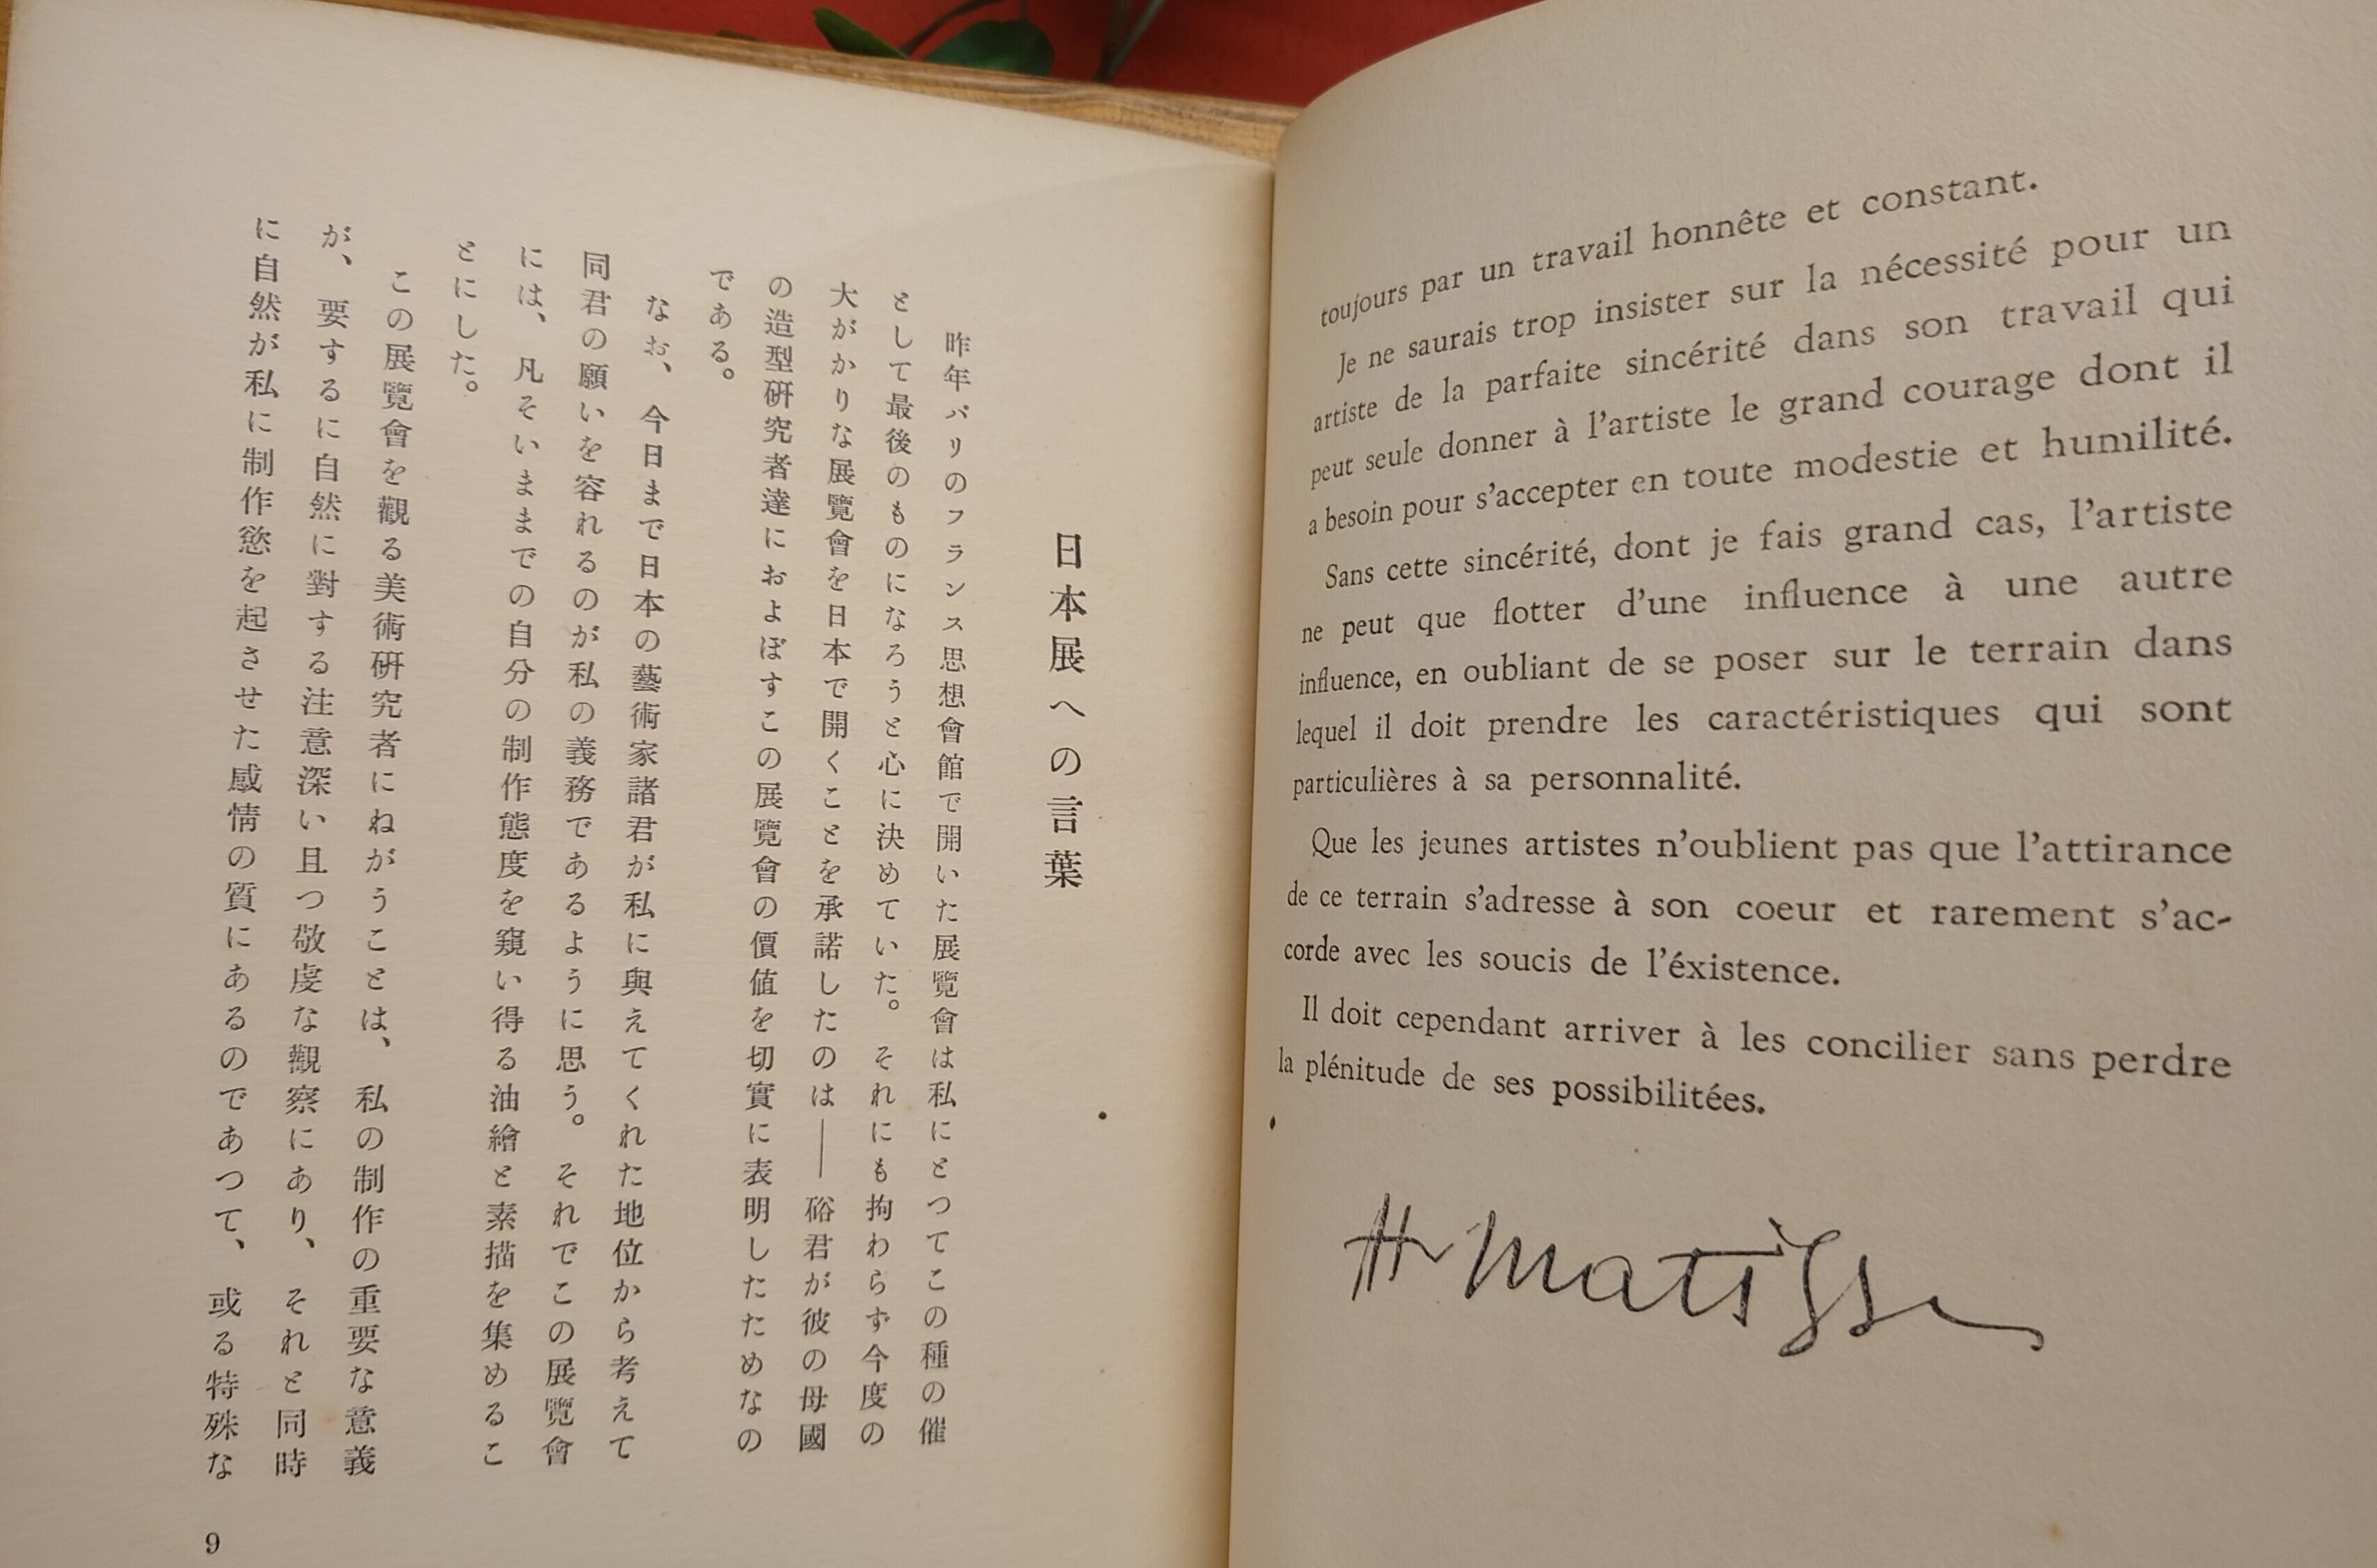 日本展への言葉
昨年パリのフランス思想會館で開いた展覽會は私にとつてこの種の催
として最後のものになろうと心に決めていた。それにも拘わらず今度の
大がかりな展覽會を日本で開くことを承諾したのは――硲君が彼の母國
の造型硏究者達におよぼすこの展覽會の價値を切實に表明したためなの
である。
なお、今日まで日本の藝術家諸君が私に與えてくれた地位から考えて
同君の願いを容れるのが私の義務であるように思う。それでこの展覽會
には、凡そいままでの自分の制作態度を窺い得る油繪と素描を集めるこ
とにした。
この展覽會を觀る美術硏究者にねがうことは、私の制作の重要な意義
が、要するに自然に對する注意深い且つ敬虔な觀察にあり、それと同時
に自然が私に制作慾を起させた感情の質にあるのであつて、或る特殊な
9
toujours par un travail honnête et constant.
Je ne saurais trop insister sur la nécessité pour un
artiste de la parfaite sincérité dans son travail qui
peut seule donner à l'artiste le grand courage dont il
a besoin pour s'accepter en toute modestie et humilité.
Sans cette sincérité, dont je fais grand cas, l'artiste
ne peut que flotter d'une influence à une autre
influence, en oubliant de se poser sur le terrain dans
lequel il doit prendre les caractéristiques qui sont
particulières à sa personnalité.
Que les jeunes artistes n'oublient pas que l'attirance
de ce terrain s'adresse à son coeur et rarement s'ac-
corde avec les soucis de l'éxistence.
Il doit cependant arriver à les concilier sans perdre
la plénitude de ses possibilitées.
H. Matisse